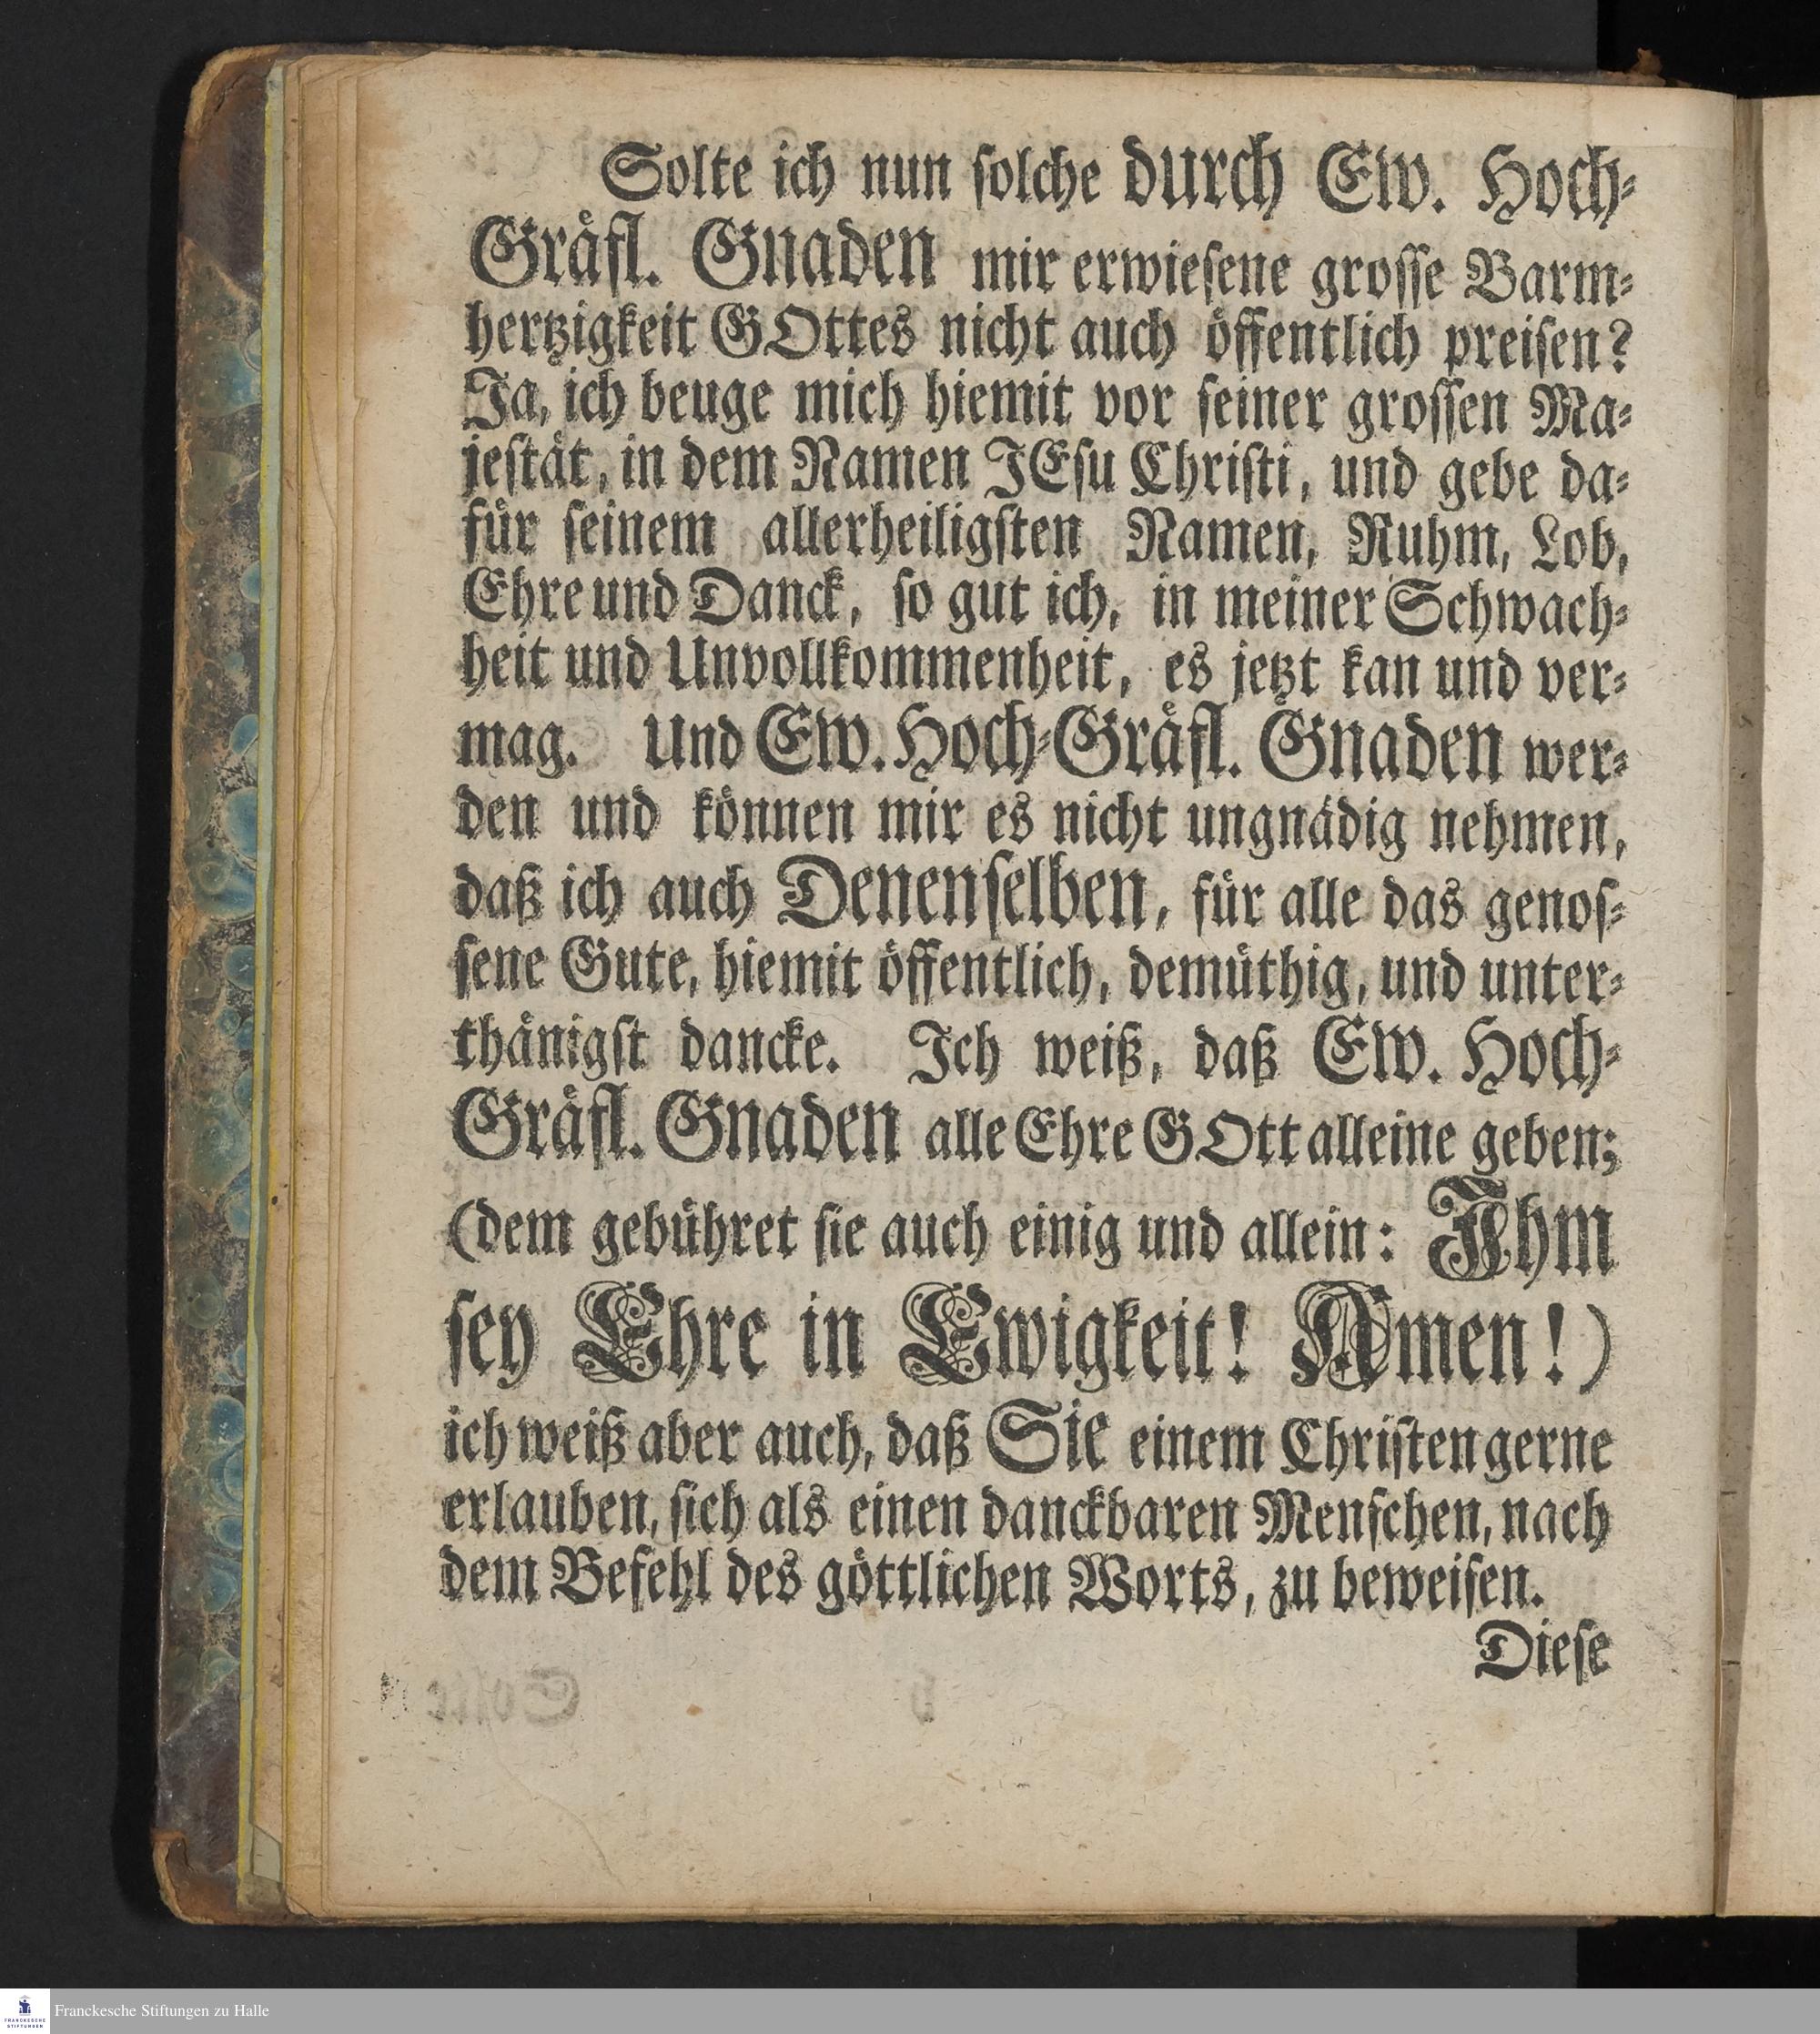 Solte ich nun solche durch Ew. Hoch-
Gräfl. Gnaden mir erwiesene grosse Barm-
hertzigkeit GOttes nicht auch öffentlich preisen?
Ja, ich beuge mich hiemit vor seiner grossen Ma-
jestät, in dem Namen JEsu Christi, und gebe da-
für seinem allerheiligsten Namen, Ruhm, Lob,
Ehre und Danck, so gut ich, in meiner Schwach-
heit und Unvollkommenheit, es jetzt kan und ver-
mag. Und Ew. Hoch-Gräfl. Gnaden wer-
den und können mir es nicht ungnädig nehmen,
daß ich auch Denenselben, für alle das genos-
sene Gute, hiemit öffentlich, demüthig, und unter-
thänigst dancke. Ich weiß, daß Ew. Hoch-
Gräfl. Gnaden alle Ehre GOtt alleine geben;
(dem gebühret sie auch einig und allein: Ihm
sey Ehre in Ewigkeit! Amen!)
ich weiß aber auch, daß Sie einem Christen gerne
erlauben, sich als einen danckbaren Menschen, nach
dem Befehl des göttlichen Worts, zu beweisen.
Diese
FRANCKESCHE
STIFTUNGEN
Franckesche Stiftungen zu Halle